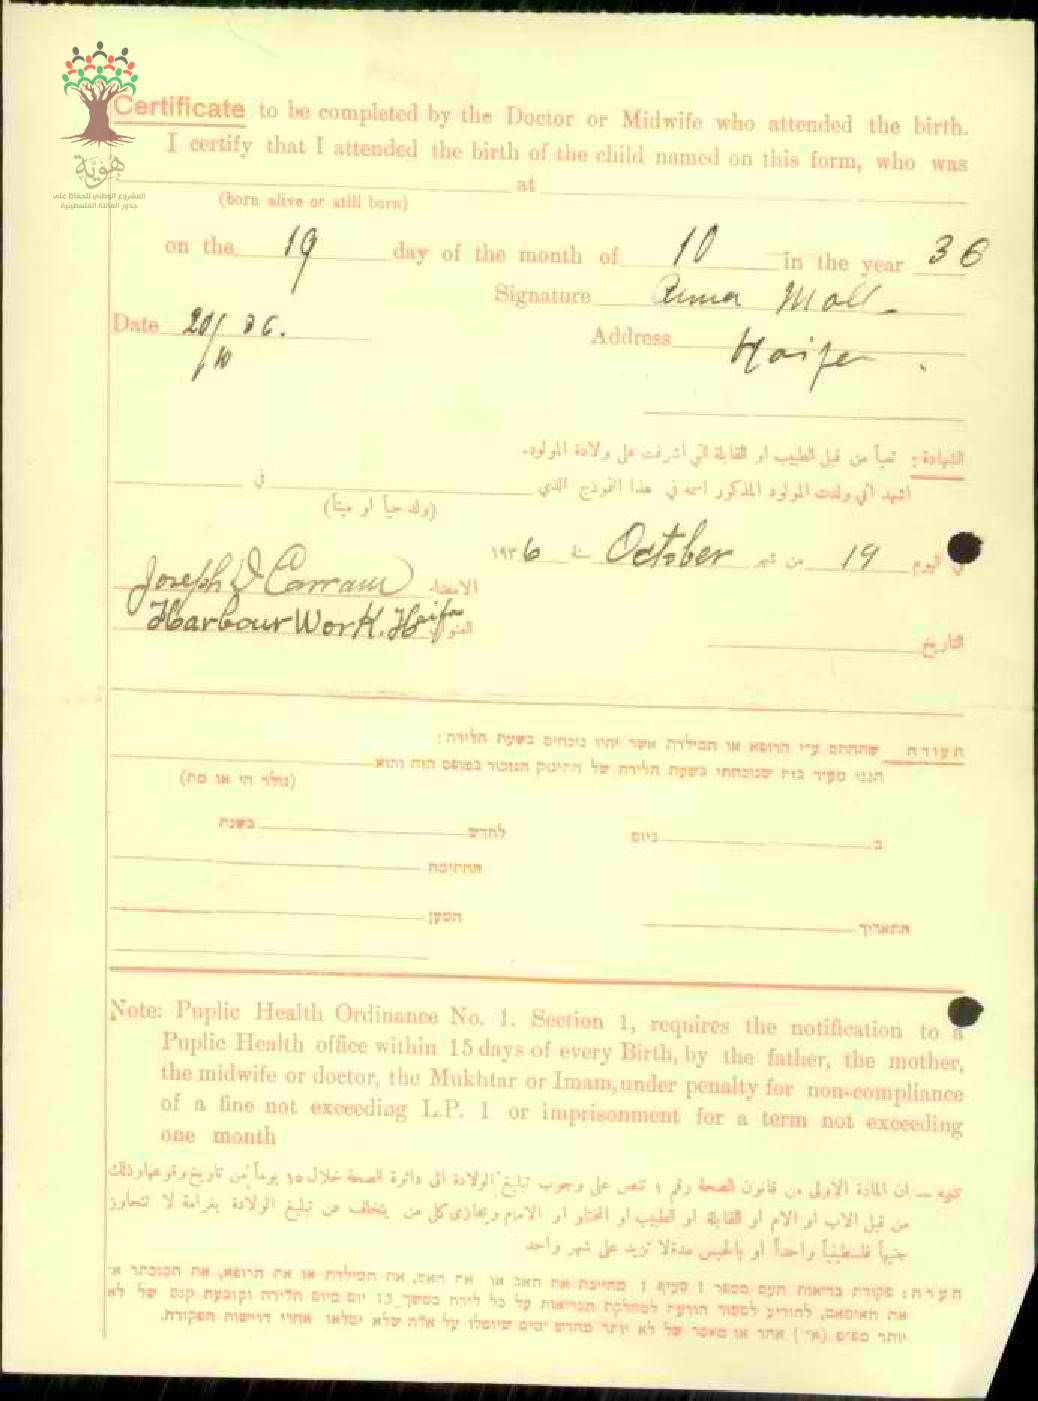 هُوِيَّة
المشروع الوطني للحفاظ على
جذور العائلة الفلسطينية
Certificate to be completed by the Doctor or Midwife who attended the birth.
I certify that I attended the birth of the child named on this form, who was
at
(born alive or still born)
on the 19 day of the month of 10 in the year 36
Signature Anna Moll
Date 20/10 36. Address Haifa.
الشهادة : تعبأ من قبل الطبيب او القابلة التي اشرفت على ولادة المولود.
اشهد اني ولدت المولود المذكور اسمه في هذا النموذج الذي في
(ولد حياً او ميتاً)
في اليوم 19 من شهر October سنة ١٩٣6
Joseph D Carram الامضاء
Harbour Work. Haifa العنوان
التاريخ
תעודה שתחתם ע״י הרופא או המילדת אשר יהיו נוכחים בשעת הלידה:
הנני מעיד בזה שנוכחתי בשעת הלידה של התינוק הנזכור בטופס הזה והוא
(נולד חי או מת)
ב ביום לחדש בשנת
החתימה
התאריך המען
Note: Puplic Health Ordinance No. 1. Section 1, requires the notification to a
Puplic Health office within 15 days of every Birth, by the father, the mother,
the midwife or doctor, the Mukhtar or Imam, under penalty for non-compliance
of a fine not exceeding L.P. 1 or imprisonment for a term not exceeding
one month
تنبيه — ان المادة الاولى من قانون الصحة رقم ١ تنص على وجوب تبليغ الولادة الى دائرة الصحة خلال ١٥ يوماً من تاريخ وقوعها وذلك
من قبل الاب او الام او القابلة او الطبيب او المختار او الامام ويجازى كل من يتخلف عن تبليغ الولادة بغرامة لا تتجاوز
جنيهاً فلسطينياً واحداً او بالحبس مدة لا تزيد على شهر واحد
הערה: פקודת בריאות העם מספר 1 סעיף 1 מחייבת את האב או את האם, את המילדת או את הרופא, את המוכתר או
את האימאם, להודיע למשרד הבריאות על כל לידה במשך 15 יום מיום הלידה וקובעת קנס של לא
יותר